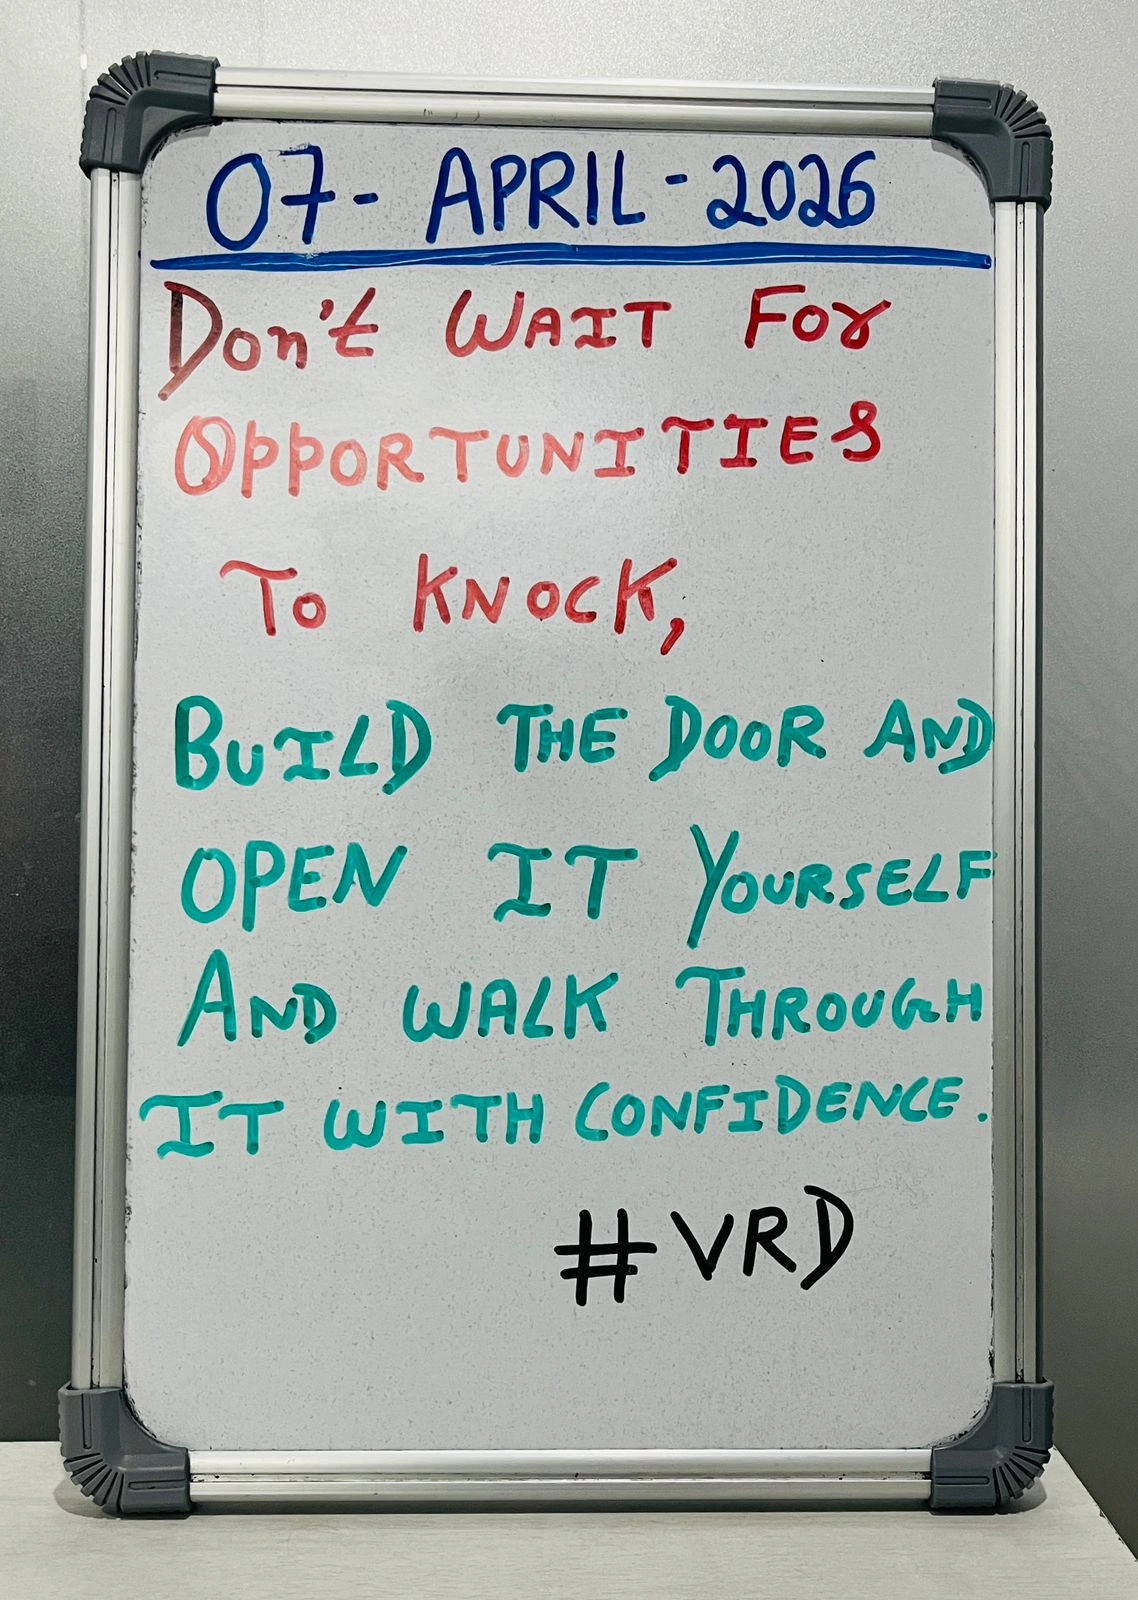 07- APRIL - 2026
Don't WAIT FOR
OPPORTUNITIES
To KNOCK,
BUILD THE DOOR AND
OPEN IT YOURSELF
AND WALK THROUGH
IT WITH CONFIDENCE.
# VRD